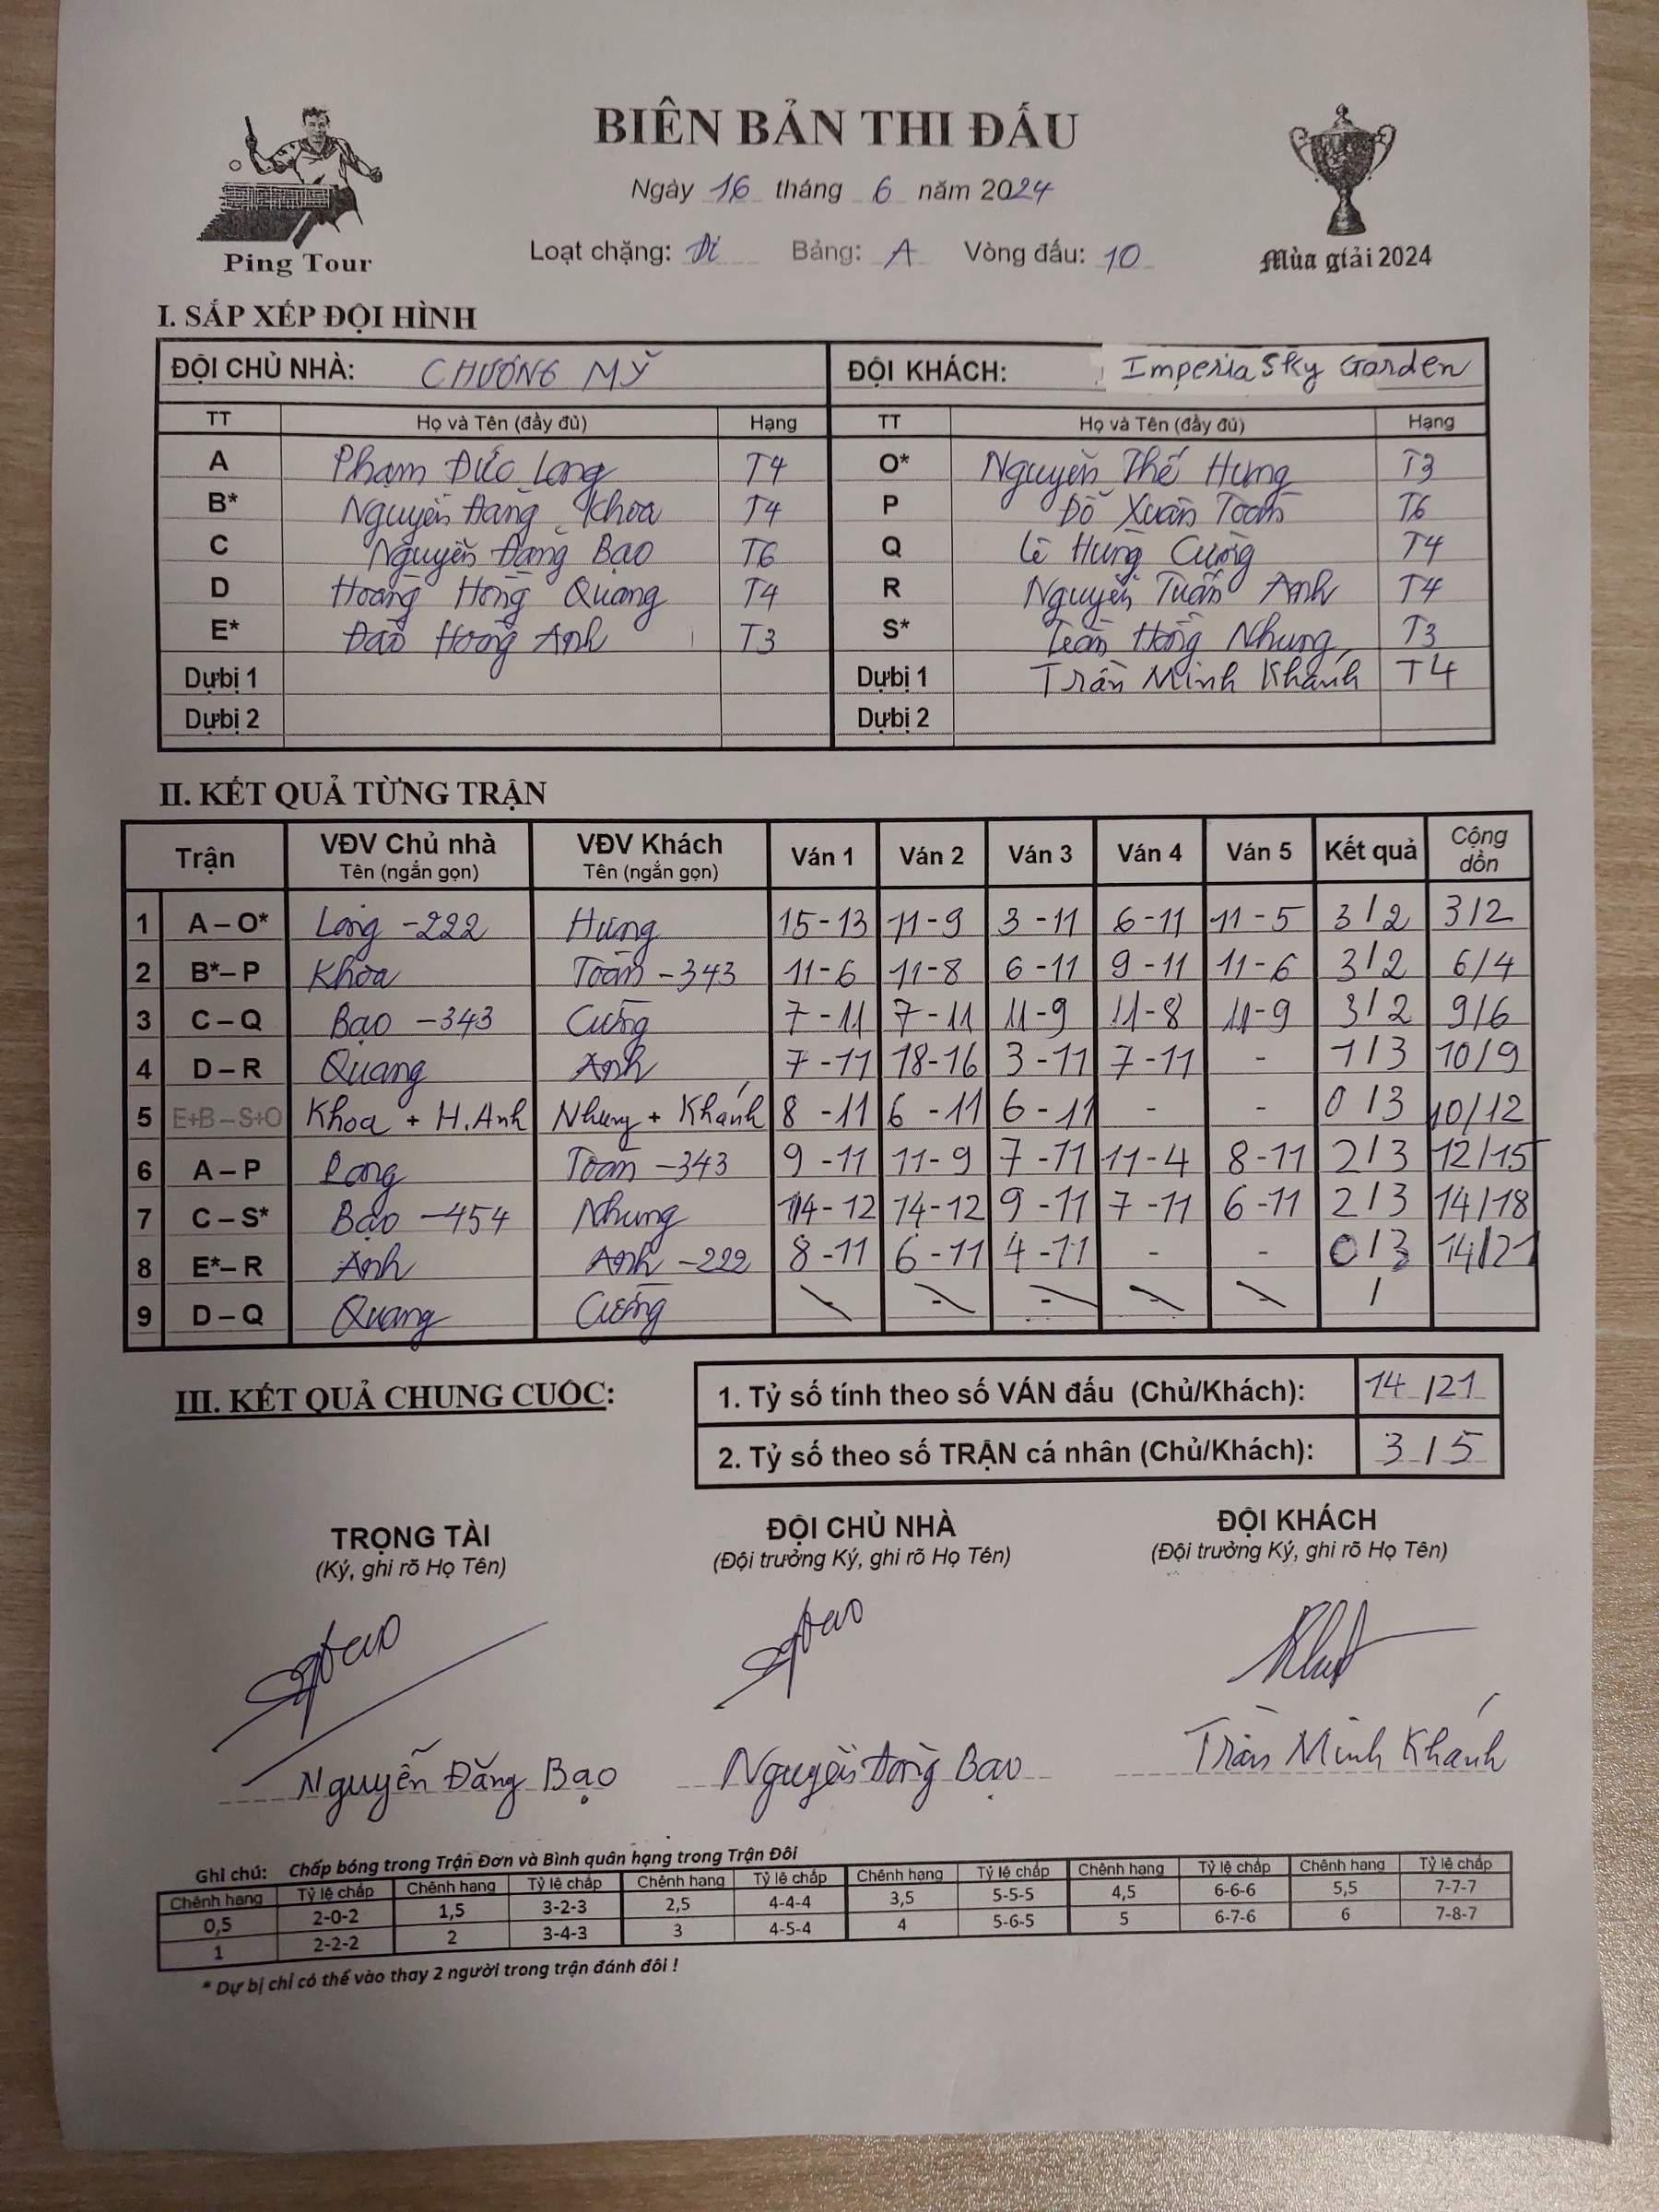 BIÊN BẢN THI ĐẤU
Ngày 16 tháng 6 năm 2024
Ping Tour
Loạt chặng: Đi Bảng: A Vòng đấu: 10
Mùa giải 2024
I. SẮP XẾP ĐỘI HÌNH
ĐỘI CHỦ NHÀ: CHƯƠNG MỸ ĐỘI KHÁCH: Imperia Sky Garden
TT Họ và Tên (đầy đủ) Hạng TT Họ và Tên (đầy đủ) Hạng
A Phạm Đức Long T4 O* Nguyễn Thế Hưng T3
B* Nguyễn Đăng Khoa T4 P Đỗ Xuân Toàn T6
C Nguyễn Đăng Bạo T6 Q Lê Hùng Cường T4
D Hoàng Hồng Quang T4 R Nguyễn Tuấn Anh T4
E* Đào Hoàng Anh T3 S* Trần Hồng Nhung T3
Dự bị 1 Dự bị 1 Trần Minh Khánh T4
Dự bị 2 Dự bị 2
II. KẾT QUẢ TỪNG TRẬN
Trận VĐV Chủ nhà Tên (ngắn gọn) VĐV Khách Tên (ngắn gọn) Ván 1 Ván 2 Ván 3 Ván 4 Ván 5 Kết quả Cộng dồn
1 A – O* Long -222 Hưng 15-13 11-9 3-11 6-11 11-5 3/2 3/2
2 B* – P Khoa Toàn -343 11-6 11-8 6-11 9-11 11-6 3/2 6/4
3 C – Q Bạo -343 Cường 7-11 7-11 11-9 11-8 11-9 3/2 9/6
4 D – R Quang Anh 7-11 18-16 3-11 7-11 - 1/3 10/9
5 E+B – S+O Khoa + H.Anh Nhung + Khánh 8-11 6-11 6-11 - - 0/3 10/12
6 A – P Long Toàn -343 9-11 11-9 7-11 11-4 8-11 2/3 12/15
7 C – S* Bạo -454 Nhung 14-12 14-12 9-11 7-11 6-11 2/3 14/18
8 E* – R Anh Anh -222 8-11 6-11 4-11 - - 0/3 14/21
9 D – Q Quang Cường - - - - - /
III. KẾT QUẢ CHUNG CUỘC:
1. Tỷ số tính theo số VÁN đấu (Chủ/Khách): 14/21
2. Tỷ số theo số TRẬN cá nhân (Chủ/Khách): 3/5
TRỌNG TÀI ĐỘI CHỦ NHÀ ĐỘI KHÁCH
(Ký, ghi rõ Họ Tên) (Đội trưởng Ký, ghi rõ Họ Tên) (Đội trưởng Ký, ghi rõ Họ Tên)
Nguyễn Đăng Bạo Nguyễn Đăng Bạo Trần Minh Khánh
Ghi chú: Chấp bóng trong Trận Đơn và Bình quân hạng trong Trận Đôi
Chênh hạng Tỷ lệ chấp Chênh hạng Tỷ lệ chấp Chênh hạng Tỷ lệ chấp Chênh hạng Tỷ lệ chấp Chênh hạng Tỷ lệ chấp Chênh hạng Tỷ lệ chấp
0,5 2-0-2 1,5 3-2-3 2,5 4-4-4 3,5 5-5-5 4,5 6-6-6 5,5 7-7-7
1 2-2-2 2 3-4-3 3 4-5-4 4 5-6-5 5 6-7-6 6 7-8-7
* Dự bị chỉ có thể vào thay 2 người trong trận đánh đôi !